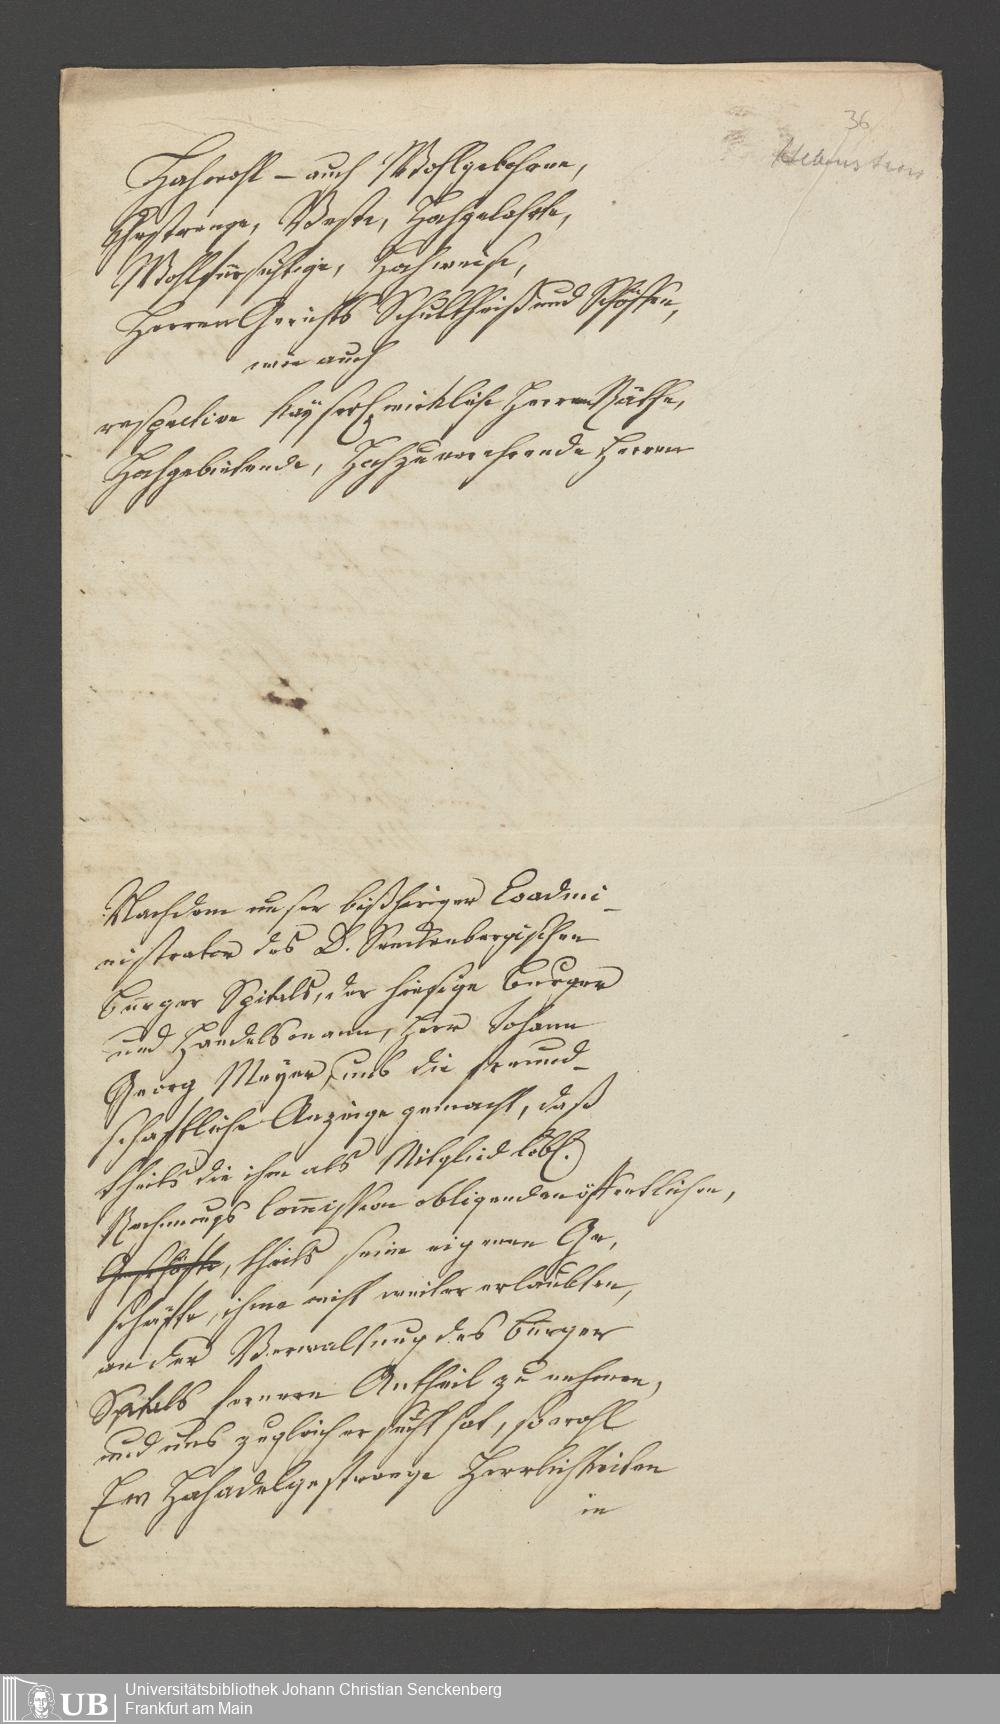 36
Hochwohl- auch Wohlgebohrne,
Gestrenge, Veste, Hochgelahrte,
Wohlfürsichtige, Hochweise,
Herren Gerichts Schultheiß und Schöffen,
wie auch
respective Kayserl. wirkliche Herren Räthe,
Hochgebietende, Hochzuverehrende Herren
Nachdem unser bißheriger Coadmi-
nistrator des D. Senckenbergischen
Bürger Spitals, der hiesige Burger
und Handelsmann, Herr Johann
Georg Meyer, uns die freund-
schaftliche Anzeige gemacht, daß
theils die ihm als Mitglied löbl.
Rechnungs Commission obligenden öffentlichen,
Geschäfte, theils seine eigenen Ge,
schäfte, ihme nicht weiter erlaubten,
an der Verwaltung des Bürger
Spitals fernern Antheil zu nehmen,
und uns zugleich ersucht hat, sowohl
Ew Hochadelgestrenge Herrlichkeiten
in
UB
Universitätsbibliothek Johann Christian Senckenberg
Frankfurt am Main